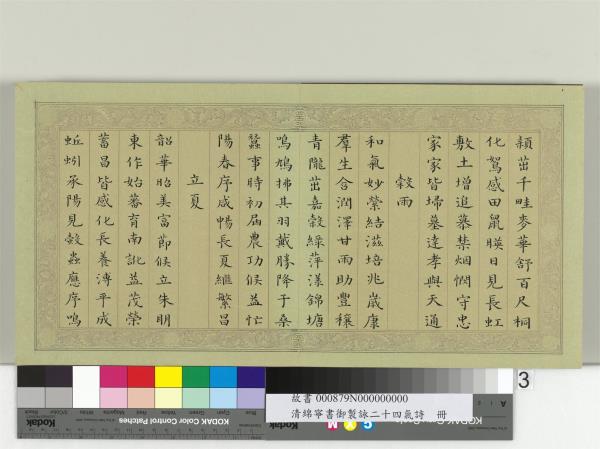 穎茁千畦麥華舒百尺桐
化鴽感田鼠暎日見長虹
敷土增追慕禁烟憫守忠
家家皆埽墓達孝與天通
穀雨
和氣妙縈結滋培兆歲康
羣生含潤澤甘雨助豐穰
青隴茁嘉穀綠萍漾錦塘
鳴鳩拂其羽戴勝降于桑
蠶事時初屆農功候益忙
陽春序咸暢長夏繼繁昌
立夏
韶華昭美富節候立朱明
東作始蕃育南訛益茂榮
蕃昌皆感化長養溥平成
蚯蚓承陽見螜蟲應序鳴
3
故書 000879N000000000
清綿寧書御製詠二十四氣詩 冊
Kodak
KODAK Color Control Patches
C M